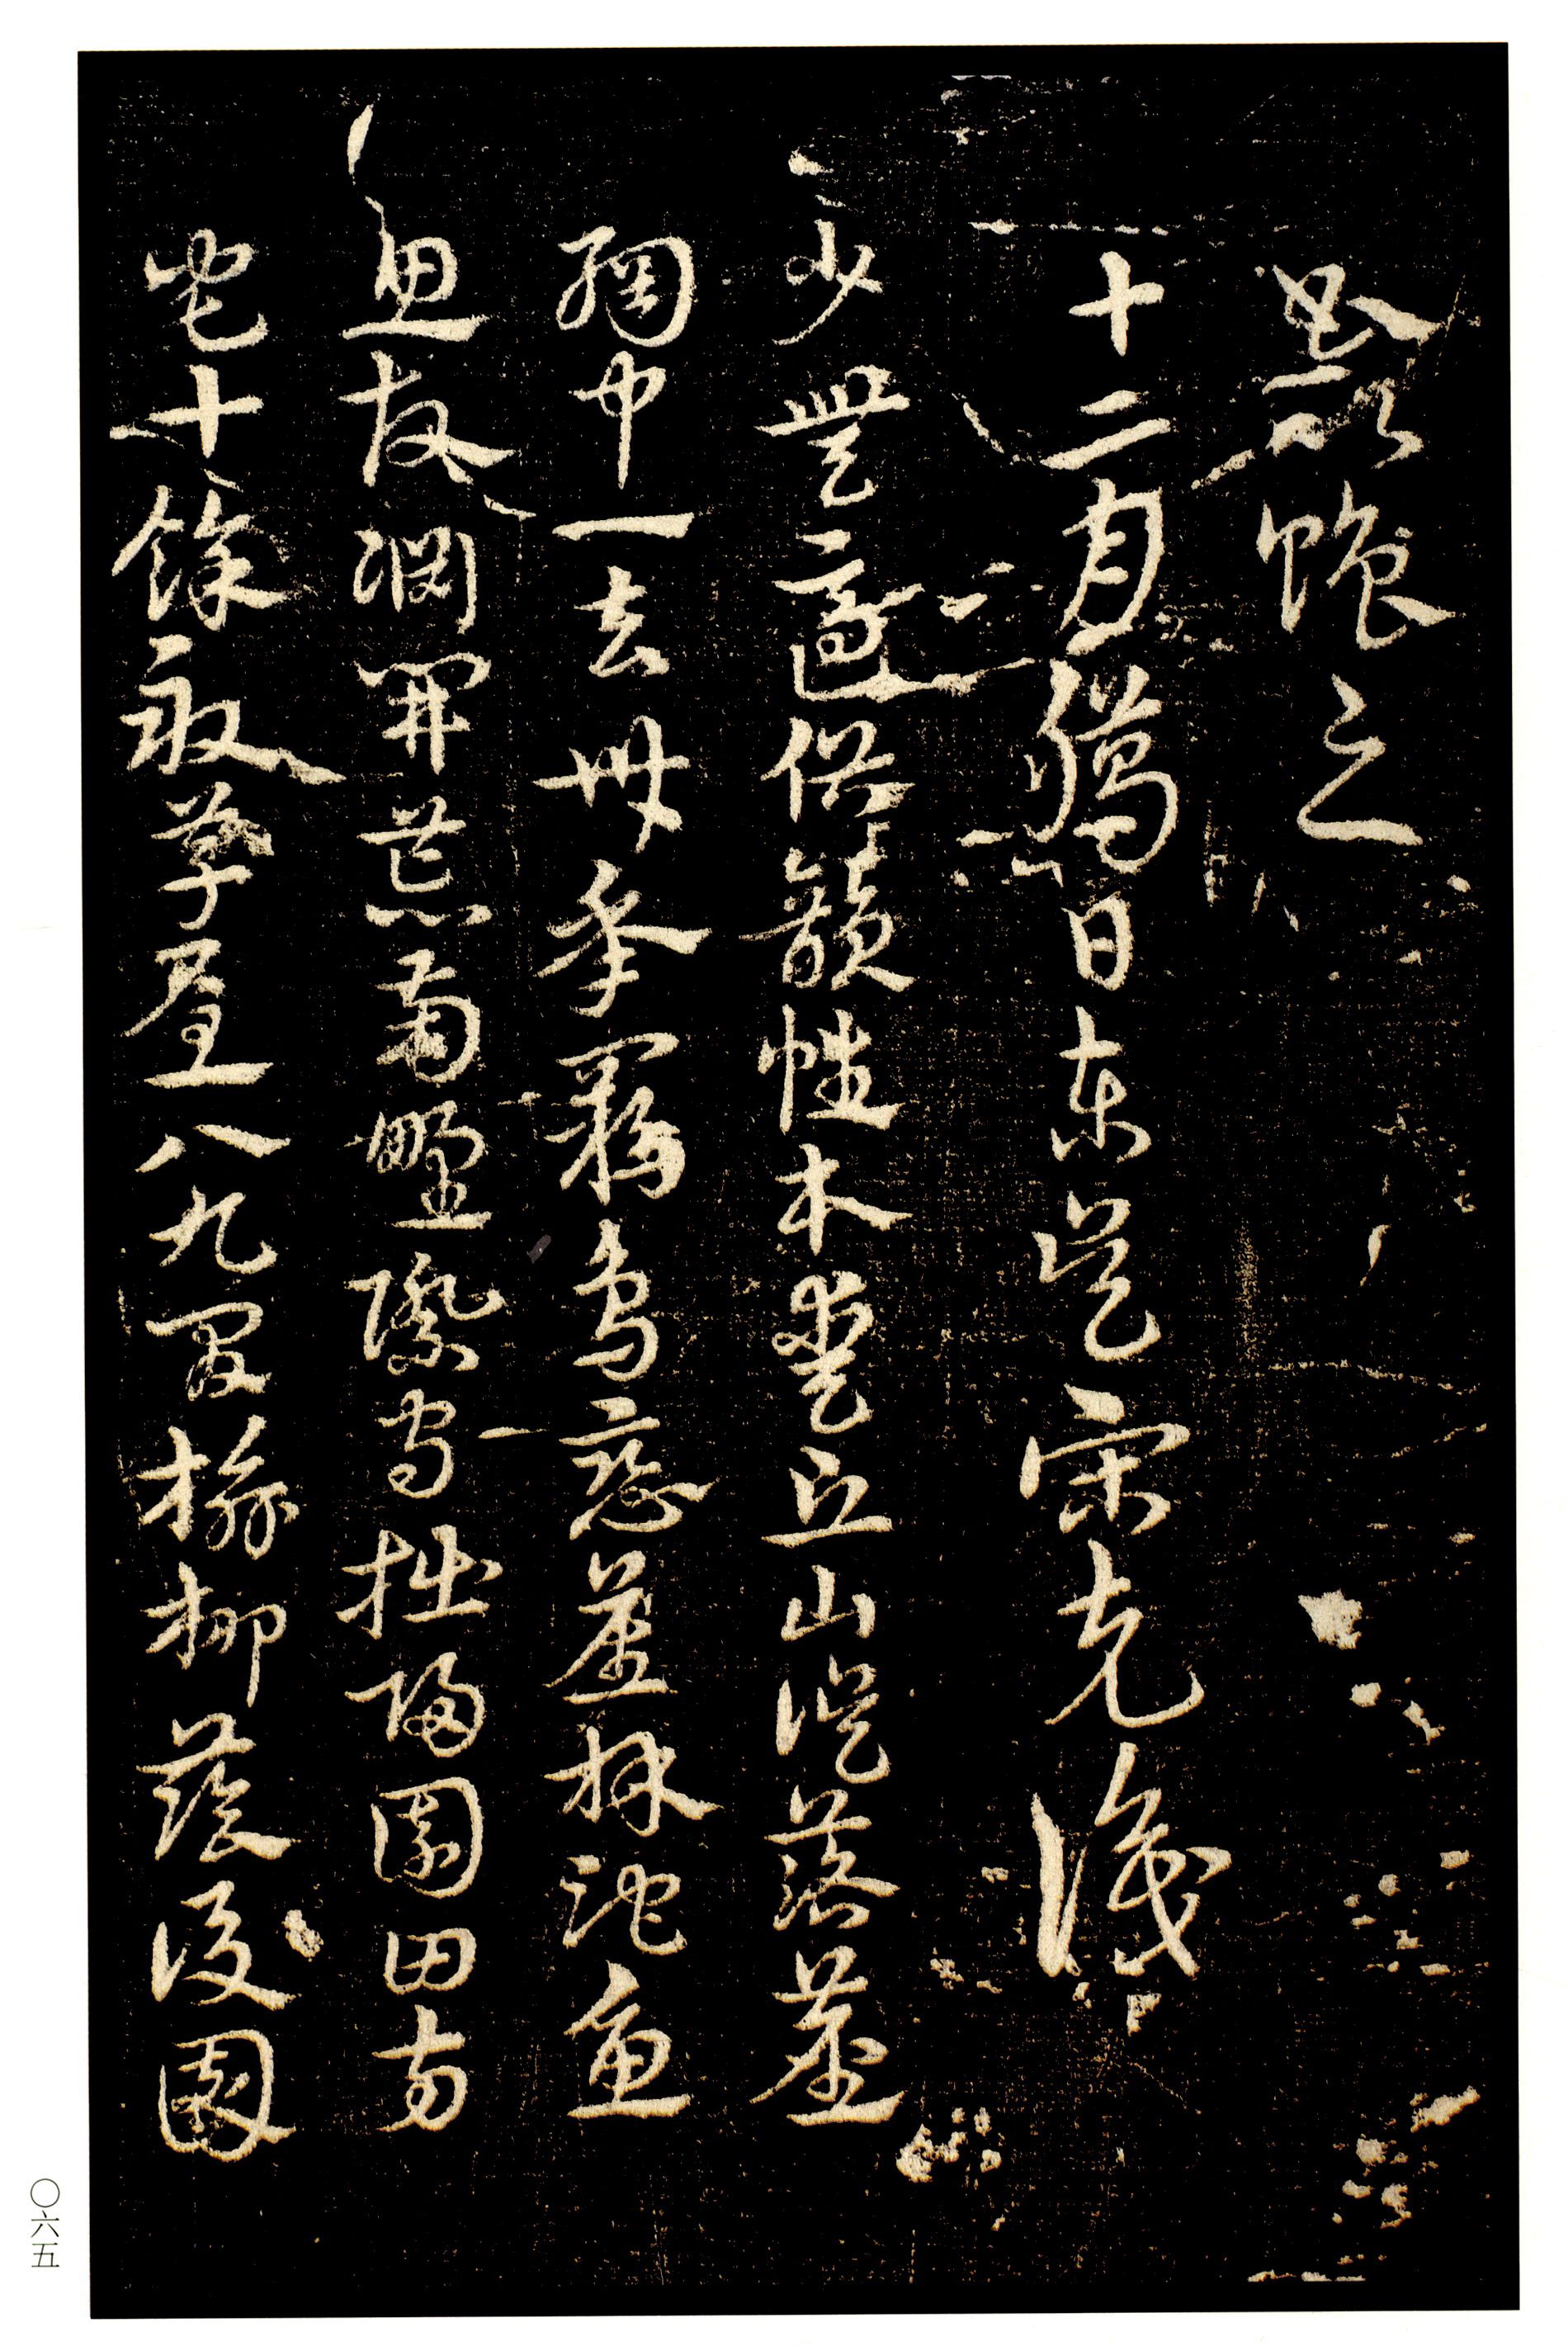 以之
十二月臈日東吳宋克識
少無適俗韻性本愛丘山誤落塵
網中一去卅年羈鳥戀舊林池魚
思故淵開荒南野際守拙歸園田方
宅十餘畝草屋八九間榆柳蔭後園
〇六五